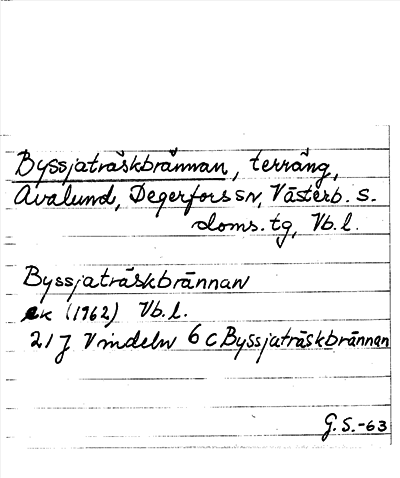 Byssjaträskbrännan, terräng,
Avalund, Degerfors sn, Västerb. s.
doms. tg, Vb. l.
Byssjaträskbrännan
ek (1962) Vb. l.
21J Vindeln 6 c Byssjaträskbrännan
G. S. -63